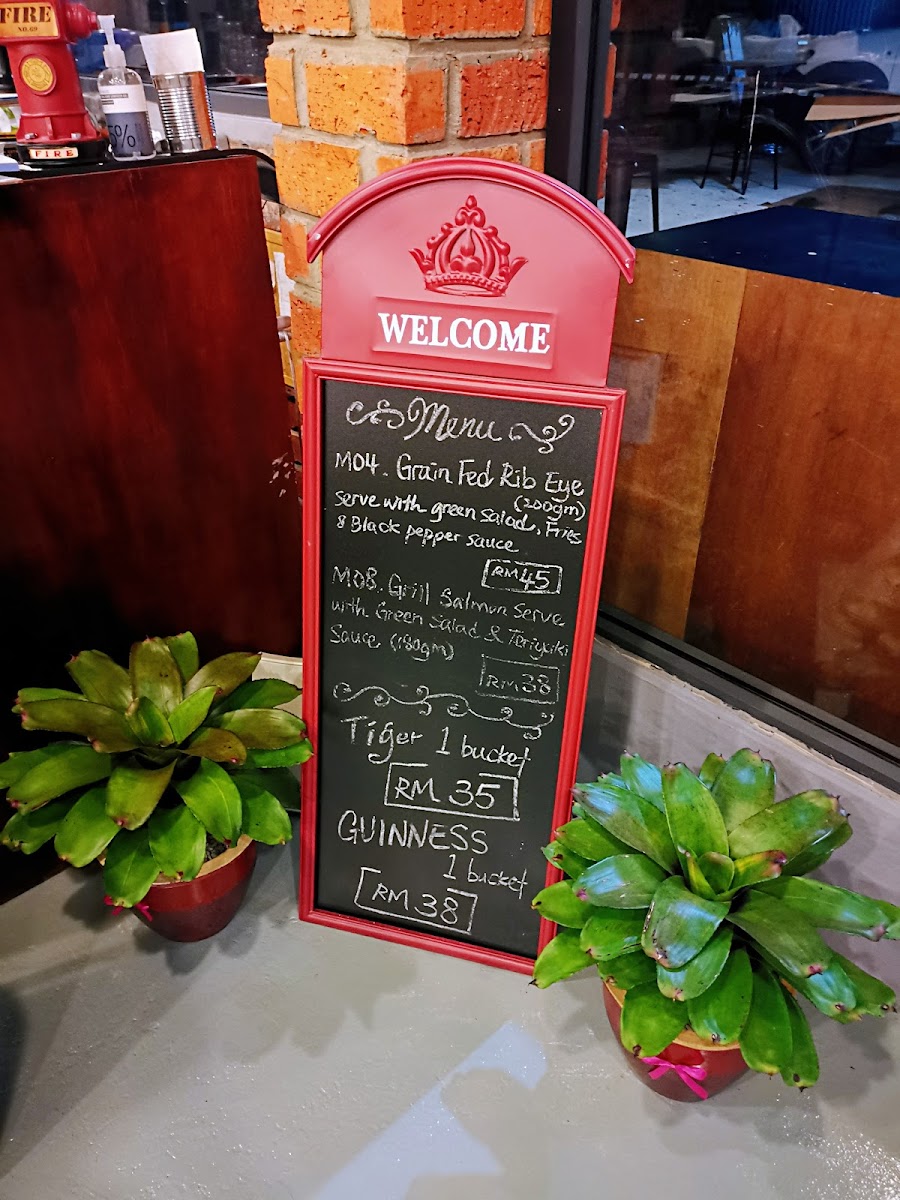 FIRE
NO.69
FIRE
5%
WELCOME
Menu
M04. Grain Fed Rib Eye
(200gm)
Serve with green salad, Fries
& Black pepper sauce
RM45
M08. Grill Salmon Serve
with Green Salad & Teriyiki
Sauce (180gm)
RM38
Tiger 1 bucket
RM 35
GUINNESS
1 bucket
RM 38